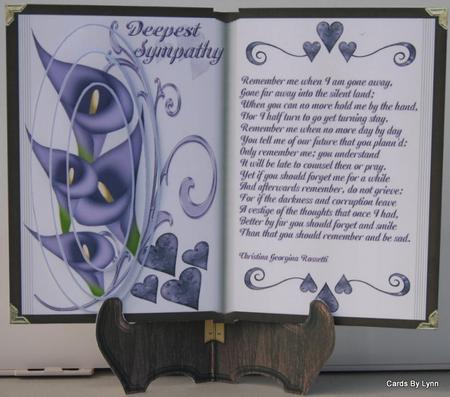 Deepest
Sympathy
Remember me when I am gone away,
Gone far away into the silent land;
When you can no more hold me by the hand,
Nor I half turn to go yet turning stay.
Remember me when no more day by day
You tell me of our future that you plann'd:
Only remember me; you understand
It will be late to counsel then or pray.
Yet if you should forget me for a while
And afterwards remember, do not grieve:
For if the darkness and corruption leave
A vestige of the thoughts that once I had,
Better by far you should forget and smile
Than that you should remember and be sad.
Christina Georgina Rossetti
Cards By Lynn